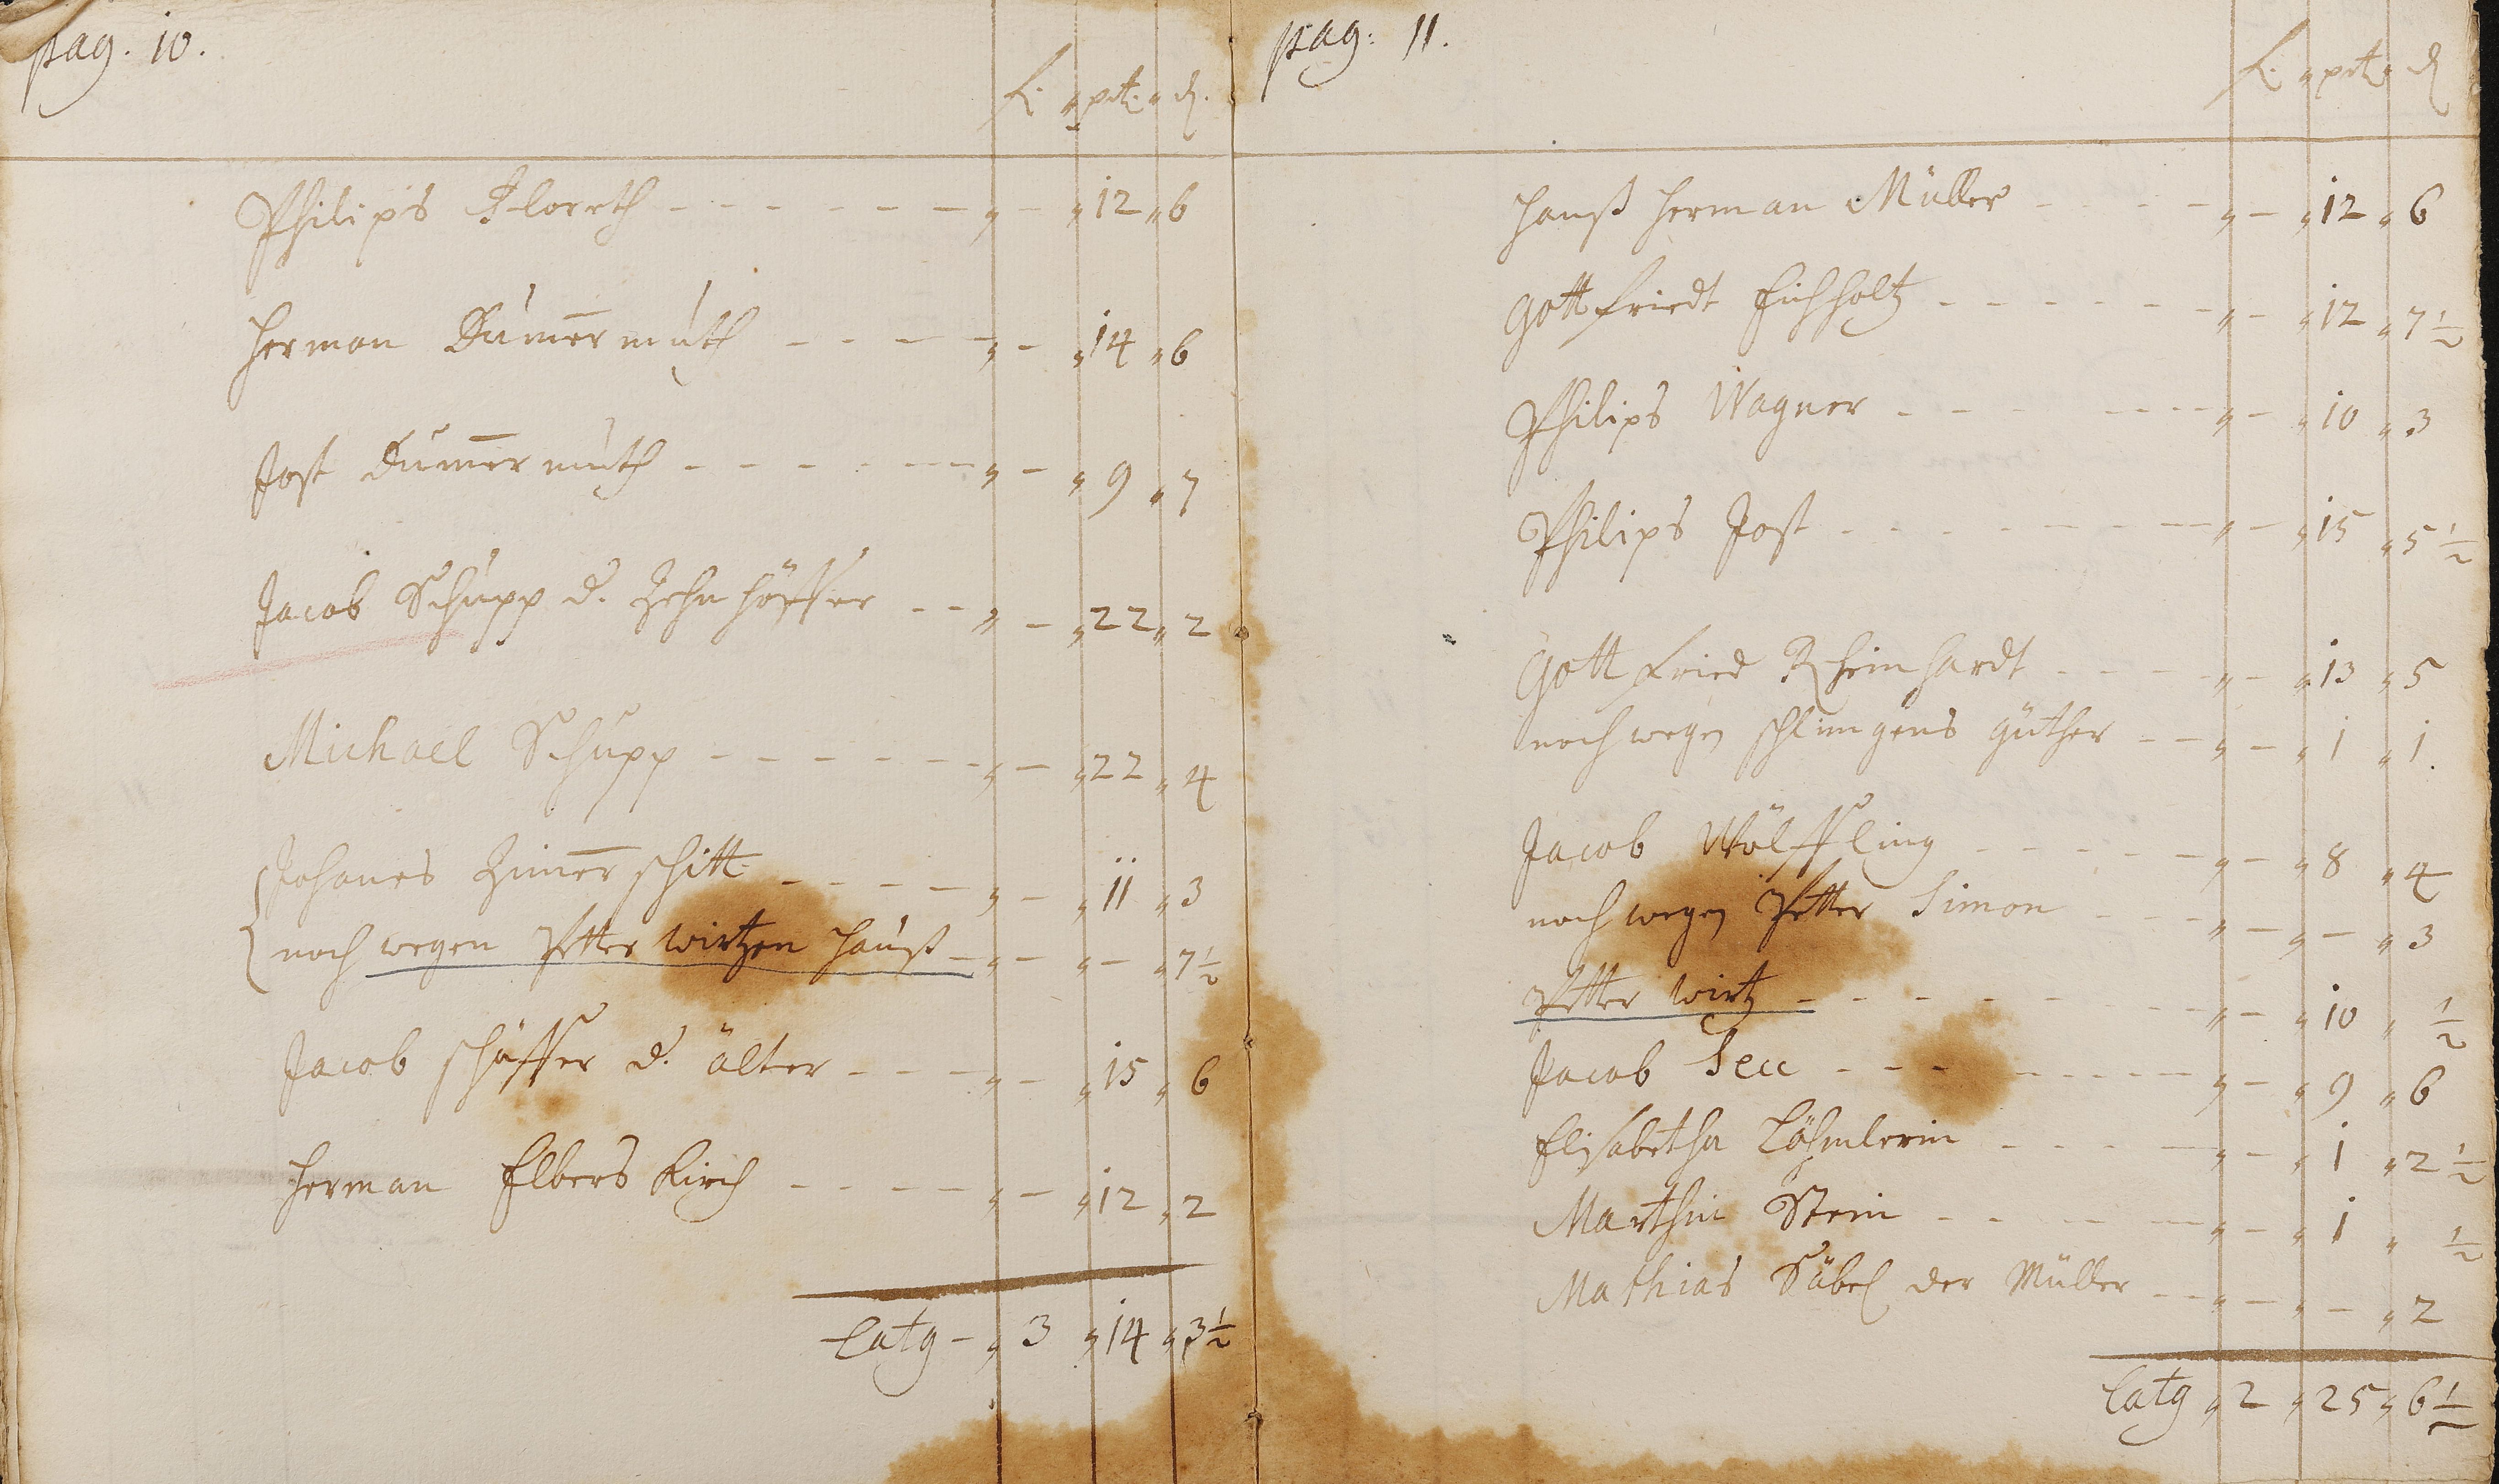 pag. 10.
f. " pet. " d.
Philips Florrth - - - - - - - " - " 12 " 6
Herman Dumērmuth - - - - " - " 14 " 6
Jost Dumērmuth - - - - - - - " - " 9 " 7
Jacob Schupp d. Zehnhöffer - - " - " 22 " 2
Michael Schupp - - - - - - " - " 22 " 4
Johanes Zimēr schitt - - - - " - " 11 " 3
noch wegen Petter wirtzen Hauß - " - " - " 7 1/2
Jacob schäffer d. älter - - - - " - " 15 " 6
Herman Elbers Kirch - - - - " - " 12 " 2
Latg - " 3 " 14 " 3 1/2
pag: 11.
f. " pet " d
Hanß Herman Müller - - - - " - " 12 " 6
Gottfriedt Eichholtz - - - - - - " - " 12 " 7 1/2
Philips Wagner - - - - - - - " - " 10 " 3
Philips Jost - - - - - - - - " - " 15 " 5 1/2
Gottfried Rheinhardt - - - - " - " 13 " 5
noch wegen schlimgens güther - - " - " 1 " 1.
Jacob Wölffling - - - - - " - " 8 " 4
noch wegen Petter Simon - - - " - " - " 3
Petter wirtz - - - - - - - - " - " 10 " 1/2
Jacob Secc - - - - - - - - " - " 9 " 6
Elisabetha Löhmlerin - - - - " - " 1 " 2 1/2
Marthin Stein - - - - - " - " 1 " 1/2
Mathias Säbel der Müller - - " - " - " 2
Latg " 2 " 25 " 6 1/2